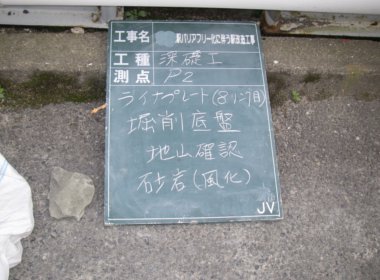 工事名 駅バリアフリー化に伴う駅改造工事
工種 深礎工
測点 P2
ライナプレート(8リング目)
掘削底盤
地山確認
砂岩(風化)
JV